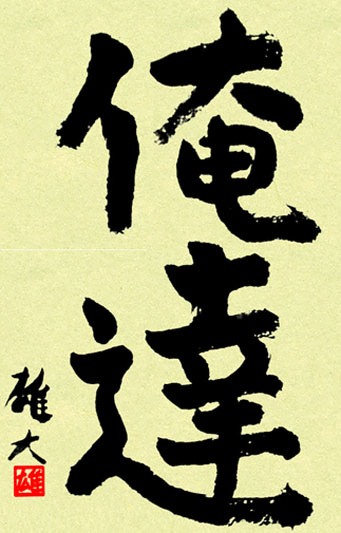 俺達
雄大
雄